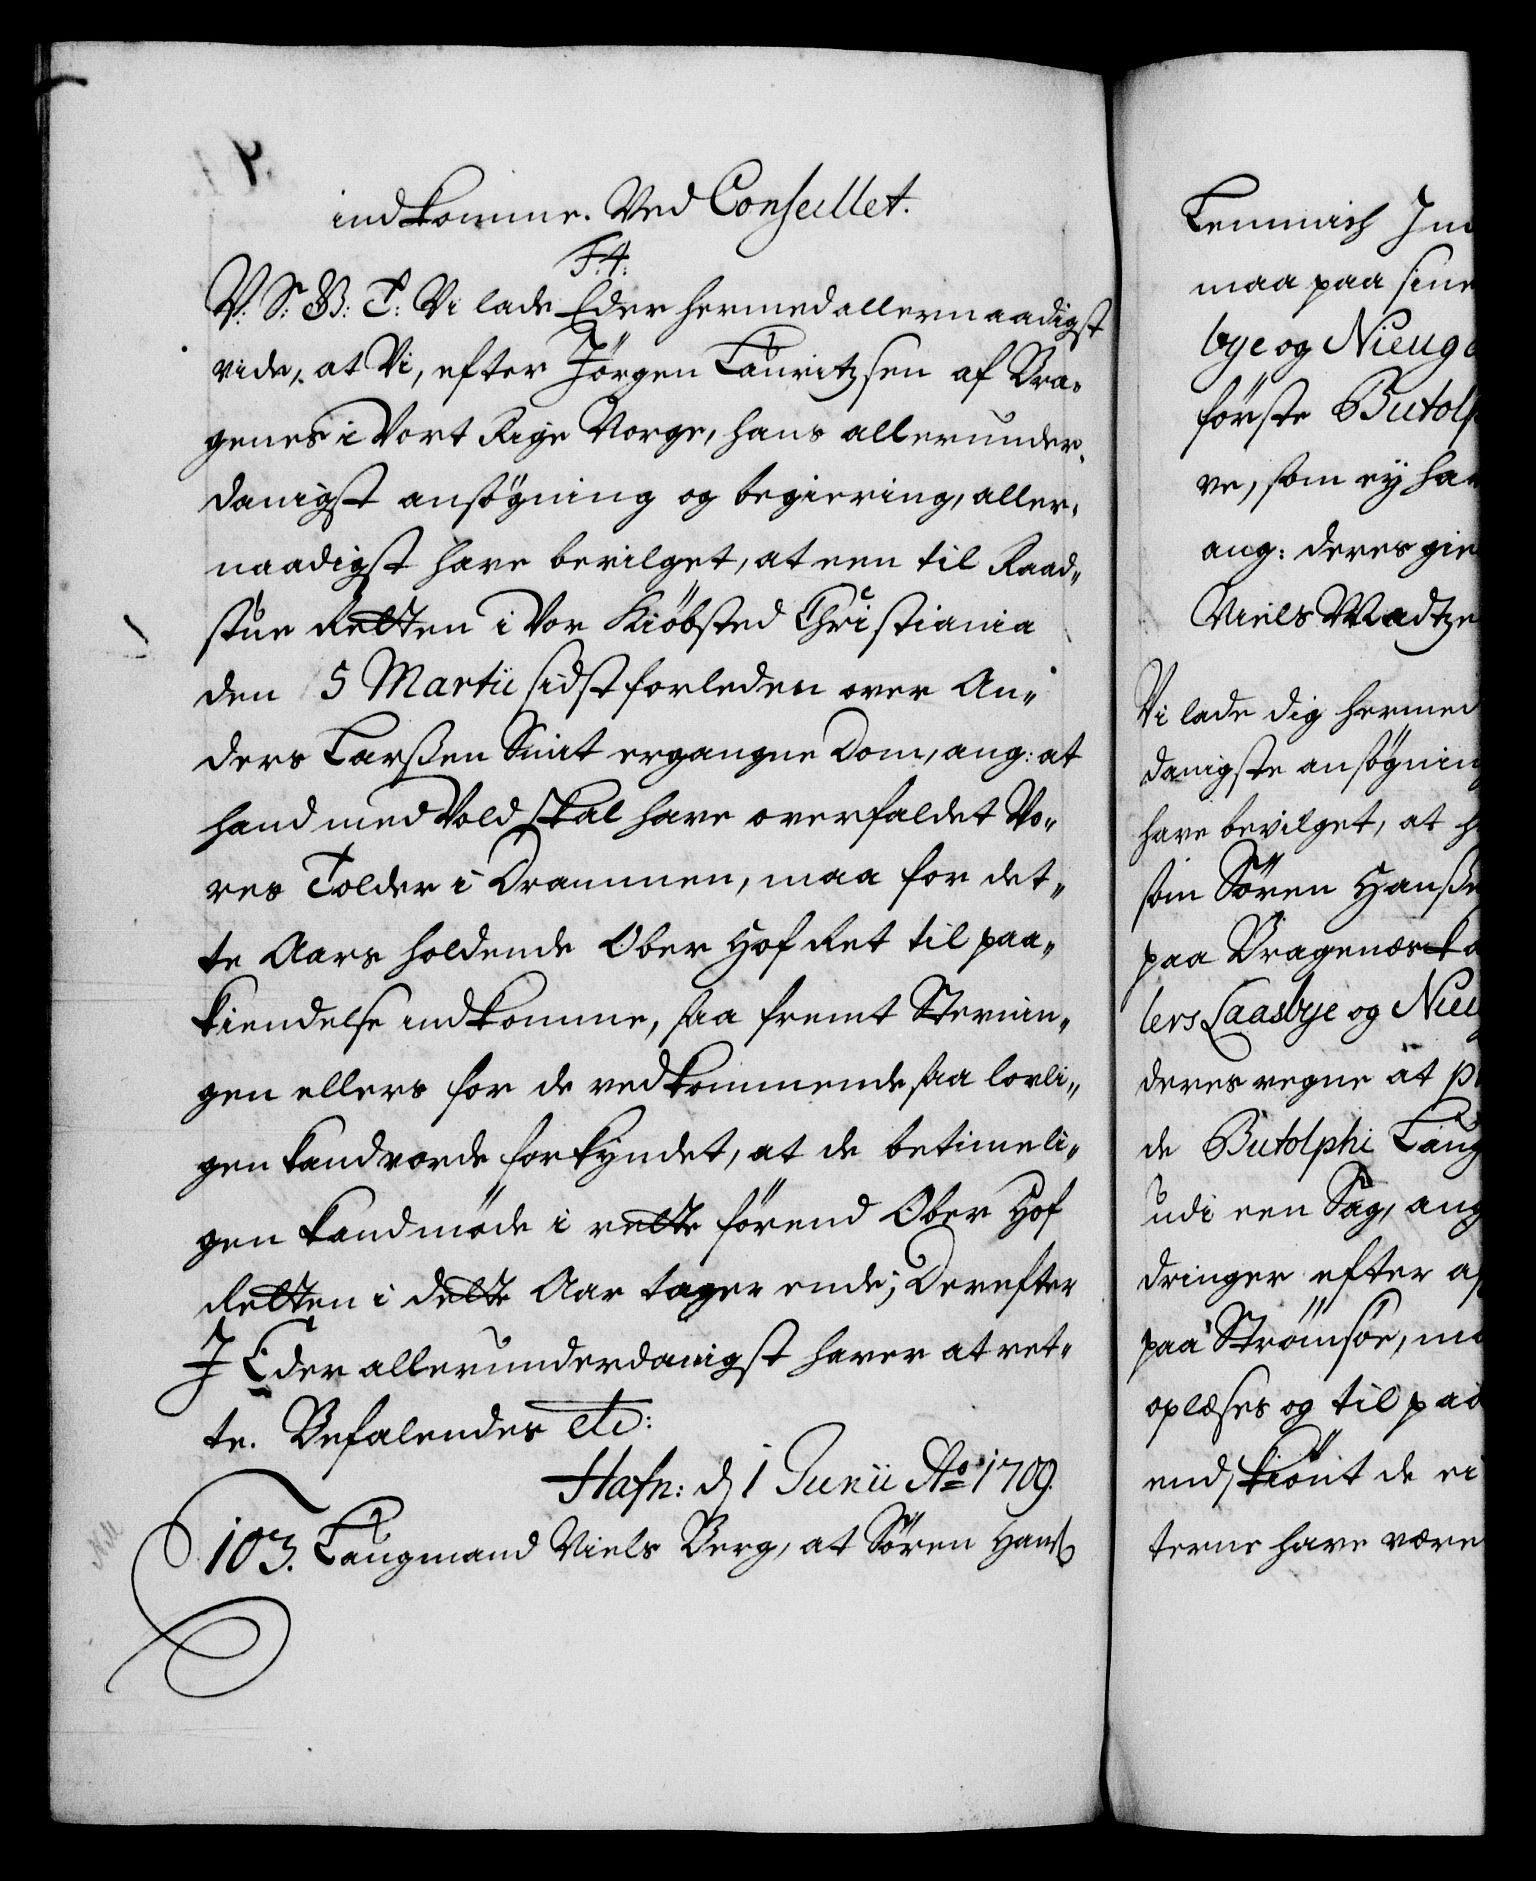 indkomme. Ved Conseillet.
F. 4.
V: S: B: T: Vi lade Eder hermed allernaadigst
vide, at Vi, efter Jörgen Lauritzsen af Bra-
genes i Vort Rige Norge, hans allerunder-
danigst ansögning og begiering, aller-
naadigst have bevilget, at een til Raad-
stue Retten i Vor Kiöbsted Christiania
den 5 Martii sidstforleden over An-
ders Larsßen Smit ergangne Dom, ang: at
hand med Vold skal have overfaldet Vo-
res Tolder i Drammen, maa for det-
te Aars holdende Ober Hof Ret til paa-
kiendelse indkomme, saa fremt Stevnin-
gen ellers for de vedkommende saa lovli-
gen kand vorde forkyndet, at de betimeli-
gen kand möde i rette förend Ober Hof
Retten i dette Aar tager ende; Derefter
I Eder allerunderdanigst haver at ret-
te. Befalendes etc:
Hafn: d 1 Junii Ao 1709.
103. Laugmand Niels Berg, at Sören Hanß
Lemmich
maa paa sine
bye og
förste Butolp
ve, som ej har
ang: deres
Niels Madtze
Vi lade dig hermed
danigste ansögning
have bevilget, at
som Sören Hanße
paa Bragenæs
lers Laasbye og
deres vegne at
de Butolphi Laug
udi een Sag, ang
dringer efter
paa Strömsöe,
oplæses og til paa
end skiönt de ei
terne have være